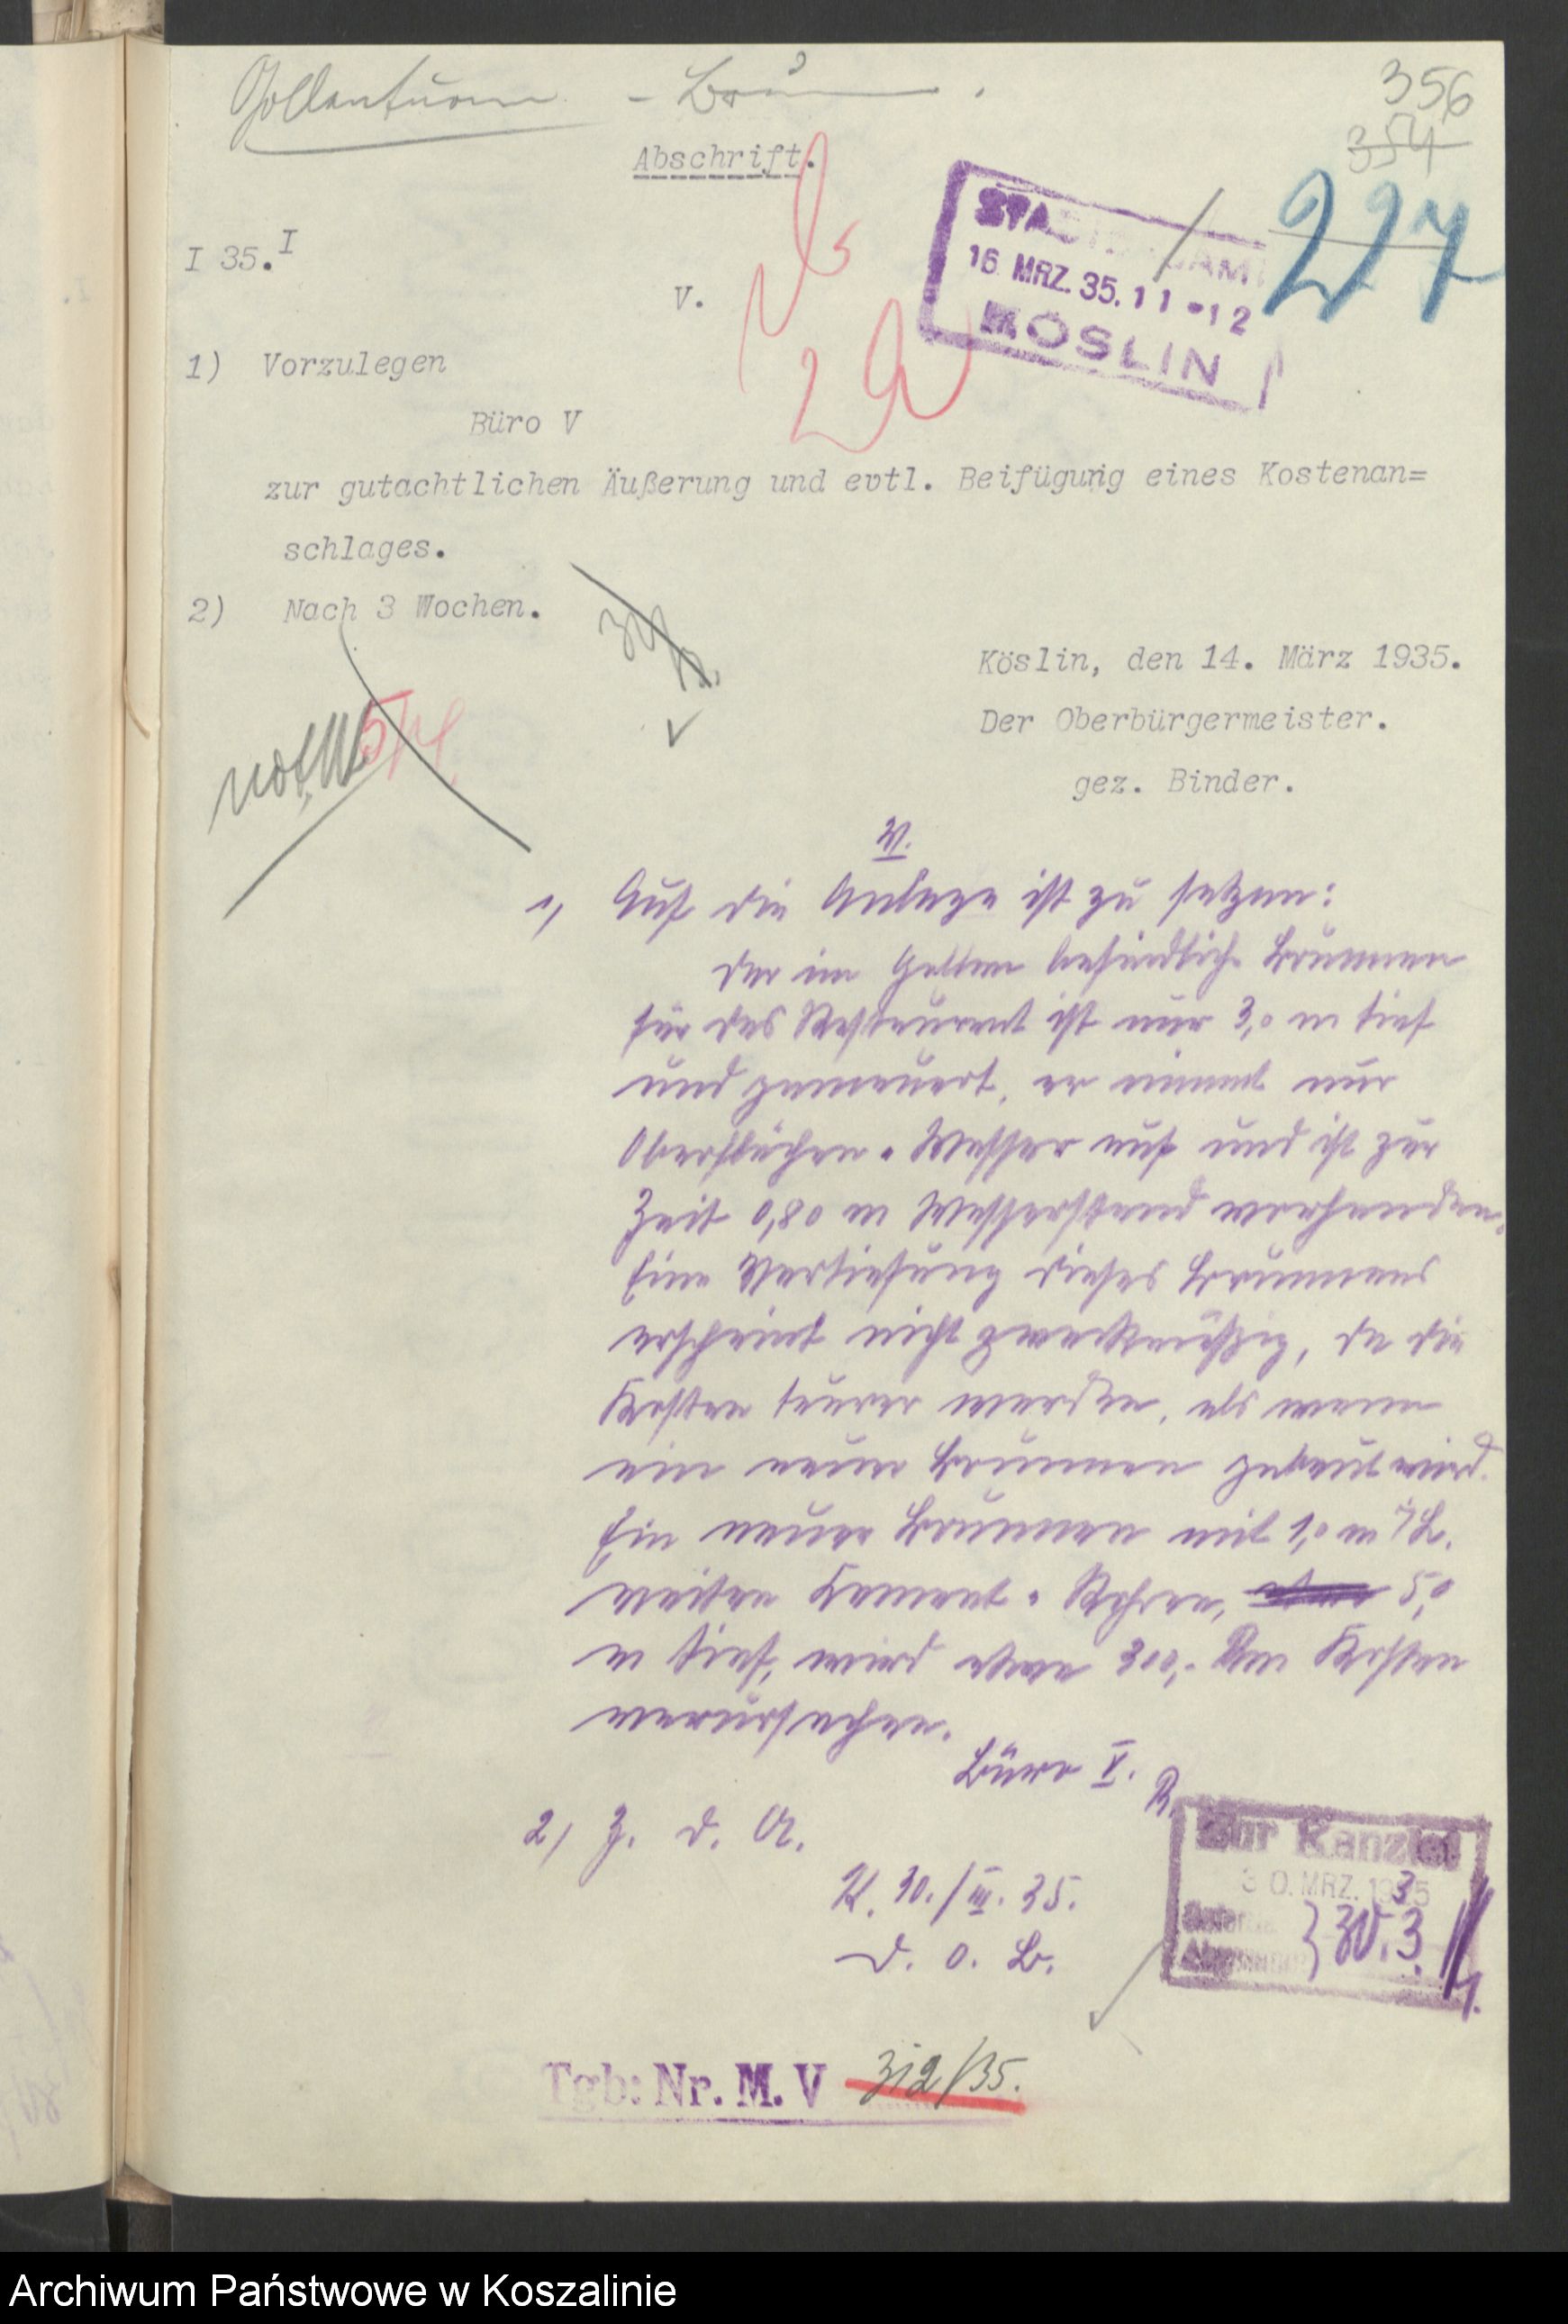 Gollenturm - Brunnen.
356
354
Abschrift.
227
I 35.I
16. MRZ. 35. 11-12
KÖSLIN
V.
1) Vorzulegen
Büro V
zur gutachtlichen Äußerung und evtl. Beifügung eines Kostenan=
schlages.
2) Nach 3 Wochen.
not.
5/4.
Köslin, den 14. März 1935.
Der Oberbürgermeister.
gez. Binder.
V.
1) Auf die Anlage ist zu setzen:
Der im Gollen befindliche Brunnen
für das Restaurant ist nur 3,0 m tief
und gemauert, er nimmt nur
Oberflächen-Wasser auf und ist zur
Zeit 0,80 m Wasserstand vorhanden.
Eine Vertiefung dieses Brunnens
erscheint nicht zweckmäßig, da die
Kosten teurer werden, als wenn
ein neuer Brunnen gebaut wird.
Ein neuer Brunnen mit 1,0 m i. L.
weiten Zement-Rohren, 5,0
m tief, wird etwa 300,- Rm Kosten
verursachen.
Büro V.
2) Z. d. A.
K. 30./III. 35.
D. O. B.
Zur Kanzlei
30. MRZ. 1935
30.3.
Tgb: Nr. M. V 312/35.
Archiwum Państwowe w Koszalinie